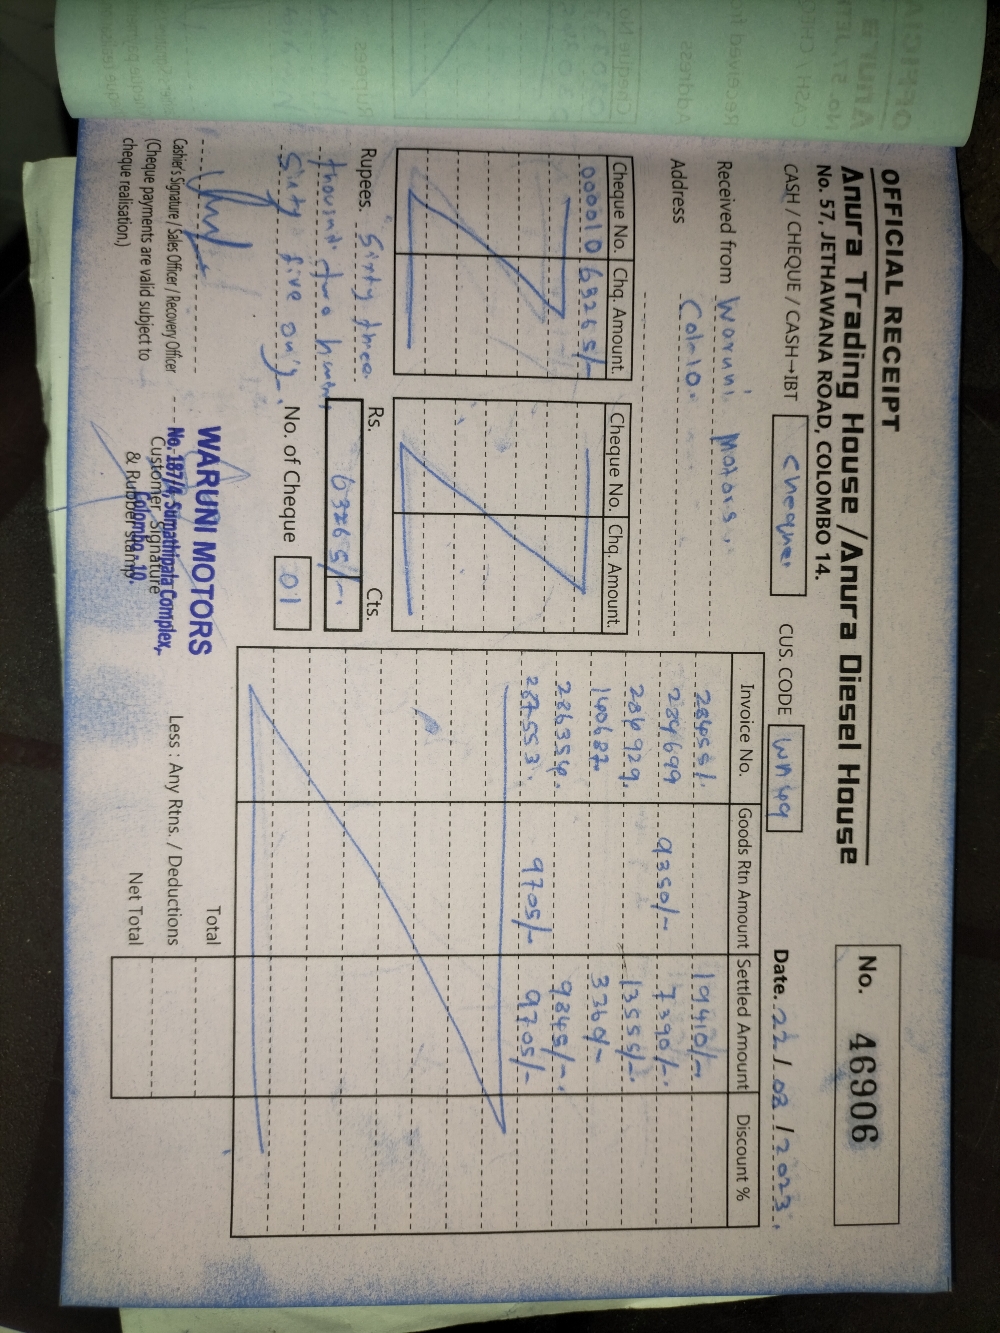 OFFICIAL RECEIPT
Anura Trading House / Anura Diesel House
No. 57, JETHAWANA ROAD, COLOMBO 14.
No. 46906
CASH / CHEQUE / CASH→IBT cheque
CUS. CODE WN49
Date. 22 / 08 / 2023.
Received from Waruni Motors.
Address Colo10.
Cheque No. Chq. Amount.
000010 63265/-
Cheque No. Chq. Amount.
Rupees. Sixty three
thousand two
Sixty five only.
Rs. Cts.
63265/-.
No. of Cheque 01
Invoice No. Goods Rtn Amount Settled Amount Discount %
284551. 19410/-.
284699 9350/- 7390/-.
284929. 13555/-.
140687. 3360/-
286354. 9845/-.
287553. 9705/- 9705/-
Total
Less : Any Rtns. / Deductions
Net Total
Cashier's Signature / Sales Officer / Recovery Officer
(Cheque payments are valid subject to
cheque realisation.)
WARUNI MOTORS
No. 187/4, Sumathipala Complex,
Colombo - 10.
Customer Signature
& Rubber Stamp